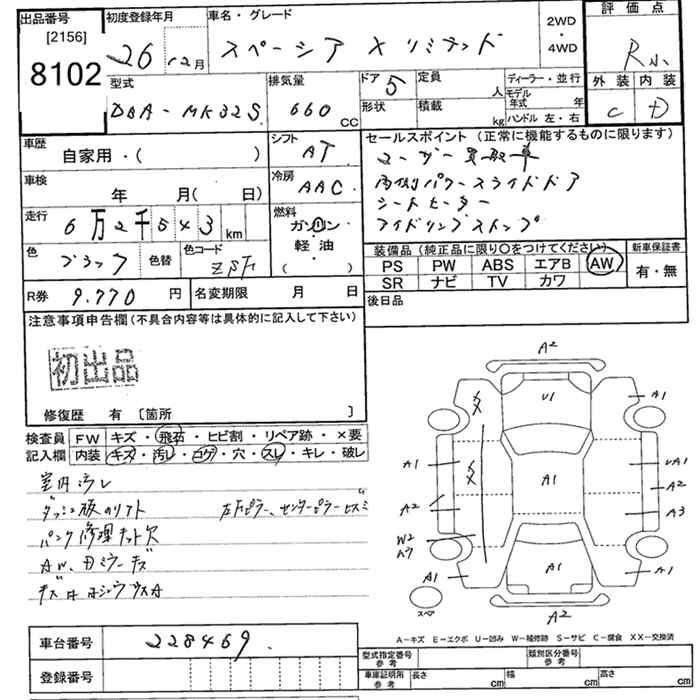 出品番号
[2156]
8102
初度登録年月
26 12月
車名・グレード
スペーシア X リミテッド
2WD
・
4WD
評価点
R
外装 内装
C D
型式
DBA-MK32S
排気量
660 CC
ドア
5
形状
定員
人
積載
kg
ディーラー・並行
モデル年式 年
ハンドル 左・右
車歴
自家用・( )
シフト
AT
車検
年 月( 日)
冷房
AAC
走行
6万2千543 km
燃料
ガソリン
軽油
( )
色
ブラック
色替
色コード
R券 9.770 円
名変期限 月 日
セールスポイント (正常に機能するものに限ります)
ユーザー買取車
両側パワースライドドア
シートヒーター
アイドリングストップ
装備品(純正品に限り○をつけてください)
新車保証書
PS PW ABS エアB AW
SR ナビ TV カワ
有・無
後日品
注意事項申告欄(不具合内容等は具体的に記入して下さい)
初出品
修復歴 有 〔箇所 〕
検査員 FW キズ・飛石・ヒビ割・リペア跡・×要
記入欄 内装 キズ・汚レ・コゲ・穴・スレ・キレ・破レ
室内汚レ
ダッシュ板のリフト
左Fピラー、センターピラー
パンク修理キット欠
AW、ミラーキズ
A2
U1
A1
A1
A1
UA1
A2
A2
A3
W2
A1
A1
A1
A2
スペア
A-キズ E-エクボ U-凹み W-補修跡 S-サビ C-腐食 XX-交換済
車台番号 228469
登録番号
型式指定番号 参考
類別区分番号 参考
車庫証明用 参考 長さ cm 幅 cm 高さ cm